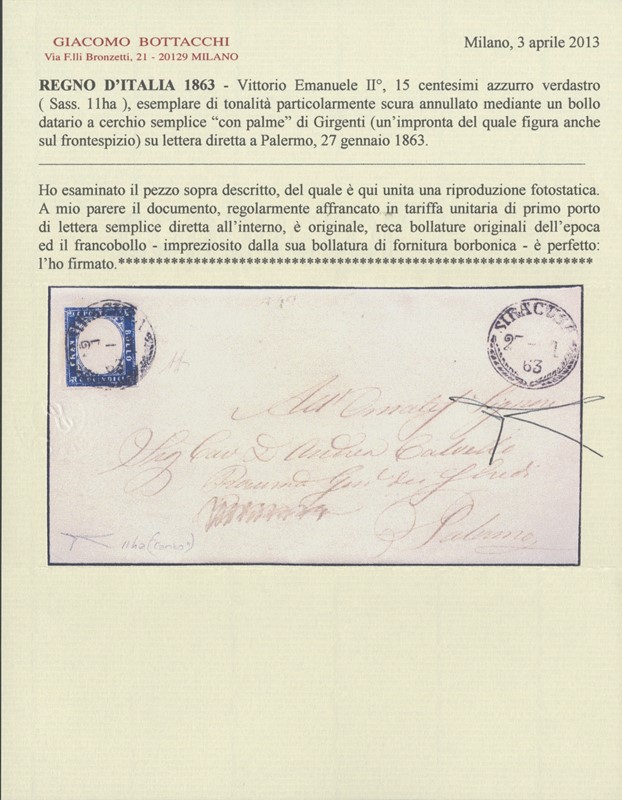 GIACOMO BOTTACCHI
Via F.lli Bronzetti, 21 - 20129 MILANO
Milano, 3 aprile 2013
REGNO D'ITALIA 1863 - Vittorio Emanuele II°, 15 centesimi azzurro verdastro
( Sass. 11ha ), esemplare di tonalità particolarmente scura annullato mediante un bollo
datario a cerchio semplice “con palme” di Girgenti (un'impronta del quale figura anche
sul frontespizio) su lettera diretta a Palermo, 27 gennaio 1863.
Ho esaminato il pezzo sopra descritto, del quale è qui unita una riproduzione fotostatica.
A mio parere il documento, regolarmente affrancato in tariffa unitaria di primo porto
di lettera semplice diretta all'interno, è originale, reca bollature originali dell'epoca
ed il francobollo - impreziosito dalla sua bollatura di fornitura borbonica - è perfetto:
l'ho firmato.*************************************************************
BOLLO
63
SIRACUSA
27
1
63
Sig Cav D Andrea
Palermo